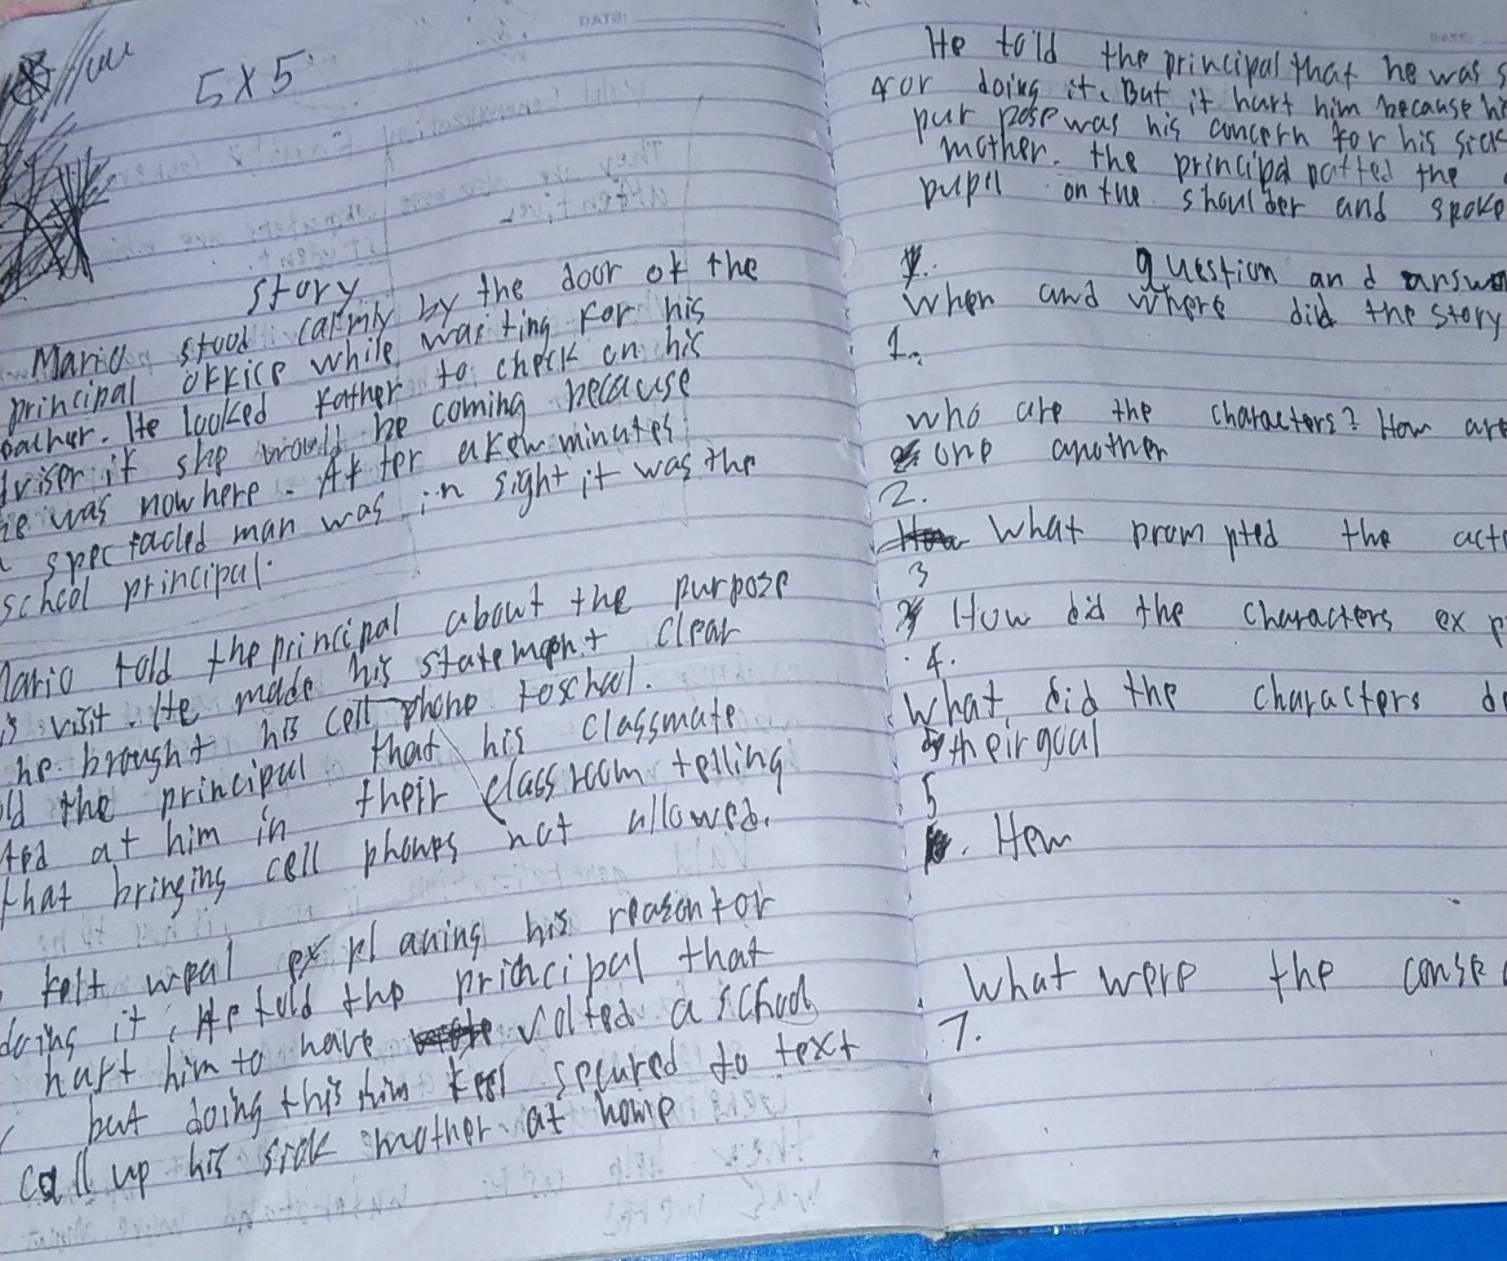 DATE:
5x5
story
Mario stood calmly by the door of the
principal office while waiting for his
father. He looked father to check on his
dviser if she would be coming because
he was nowhere. After a few minutes
a spectacled man was in sight it was the
school principal.
Mario told the principal about the purpose
is visit. He made his statement clear
he brought his cell phone to school.
ld the principal that his classmate
ted at him in their classroom telling
that bringing cell phones not allowed.
felt weal explaning his reason for
doing it, He told the principal that
hurt him to have volted a school
but doing this him feel secured to text
call up his sick mother at home
He told the principal that he was s
for doing it. But it hurt him because hi
purpose was his concern for his sick
mother. the principal patted the
pupil on the shoulder and spoke
question and answ
When and where did the story
1.
who are the characters? How are
one another
2.
What prompted the act
3
How did the characters exp
4.
What did the characters d
their goal
5
How
What were the conse
7.